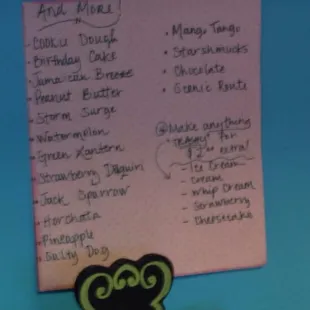 And More!
- Cookie Dough
- Birthday Cake
- Jamaican Breeze
- Peanut Butter
- Storm Surge
- Watermelon
- Green Lantern
- Strawberry Daiquiri
- Jack Sparrow
- Horchata
- Pineapple
- Salty Dog
• Mango Tango
• Starshmucks
• Chocolate
• Scenic Route
Make anything
"creamy" for
extra!
- Ice Cream
- Cream
- Whip Cream
- Strawberry
- Cheesecake